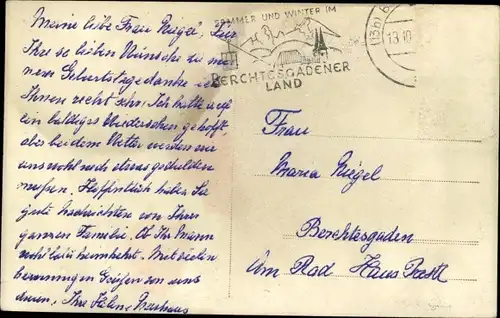 Meine liebe Frau Riegel, Für
Ihre so lieben Wünsche zu mei
nem Geburtstage danke ich
Ihnen recht sehr. Ich hatte auf
ein baldiges Wiedersehen gehofft,
aber bei dem Wetter werden wir
uns wohl noch etwas gedulden
müssen. Hoffentlich haben Sie
gute Nachrichten von Ihrer
ganzen Familie. Ob Ihr Mann
wohl bald heimkehrt. Mit vielen
Grüßen von uns
Ihre
SOMMER UND WINTER IM
BERCHTESGADENER
LAND
(13b)
13.10
Frau
Maria Riegel
Berchtesgaden
Am Rad Haus